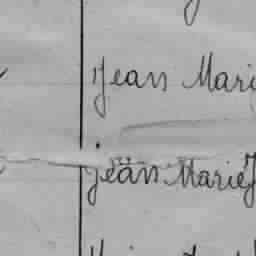 Jean Mari
Jean Marie J